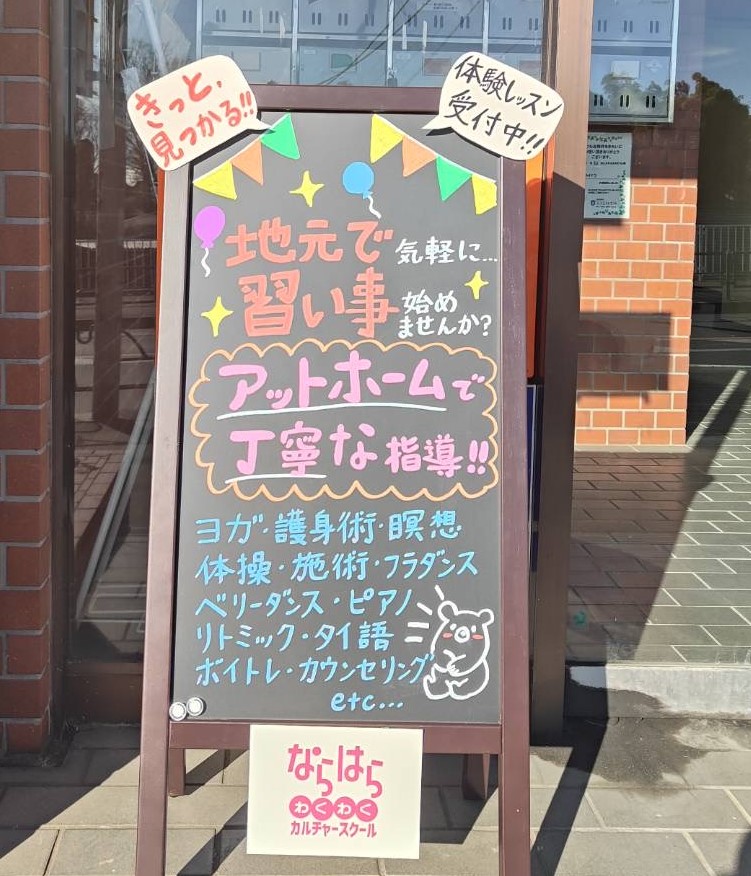 きっと、
見つかる!!
体験レッスン
受付中!!
地元で 気軽に...
習い事 始め
ませんか?
アットホームで
丁寧な指導!!
ヨガ・護身術・瞑想
体操・施術・フラダンス
ベリーダンス・ピアノ
リトミック・タイ語
ボイトレ・カウンセリング
etc...
ならはら
わくわく
カルチャースクール